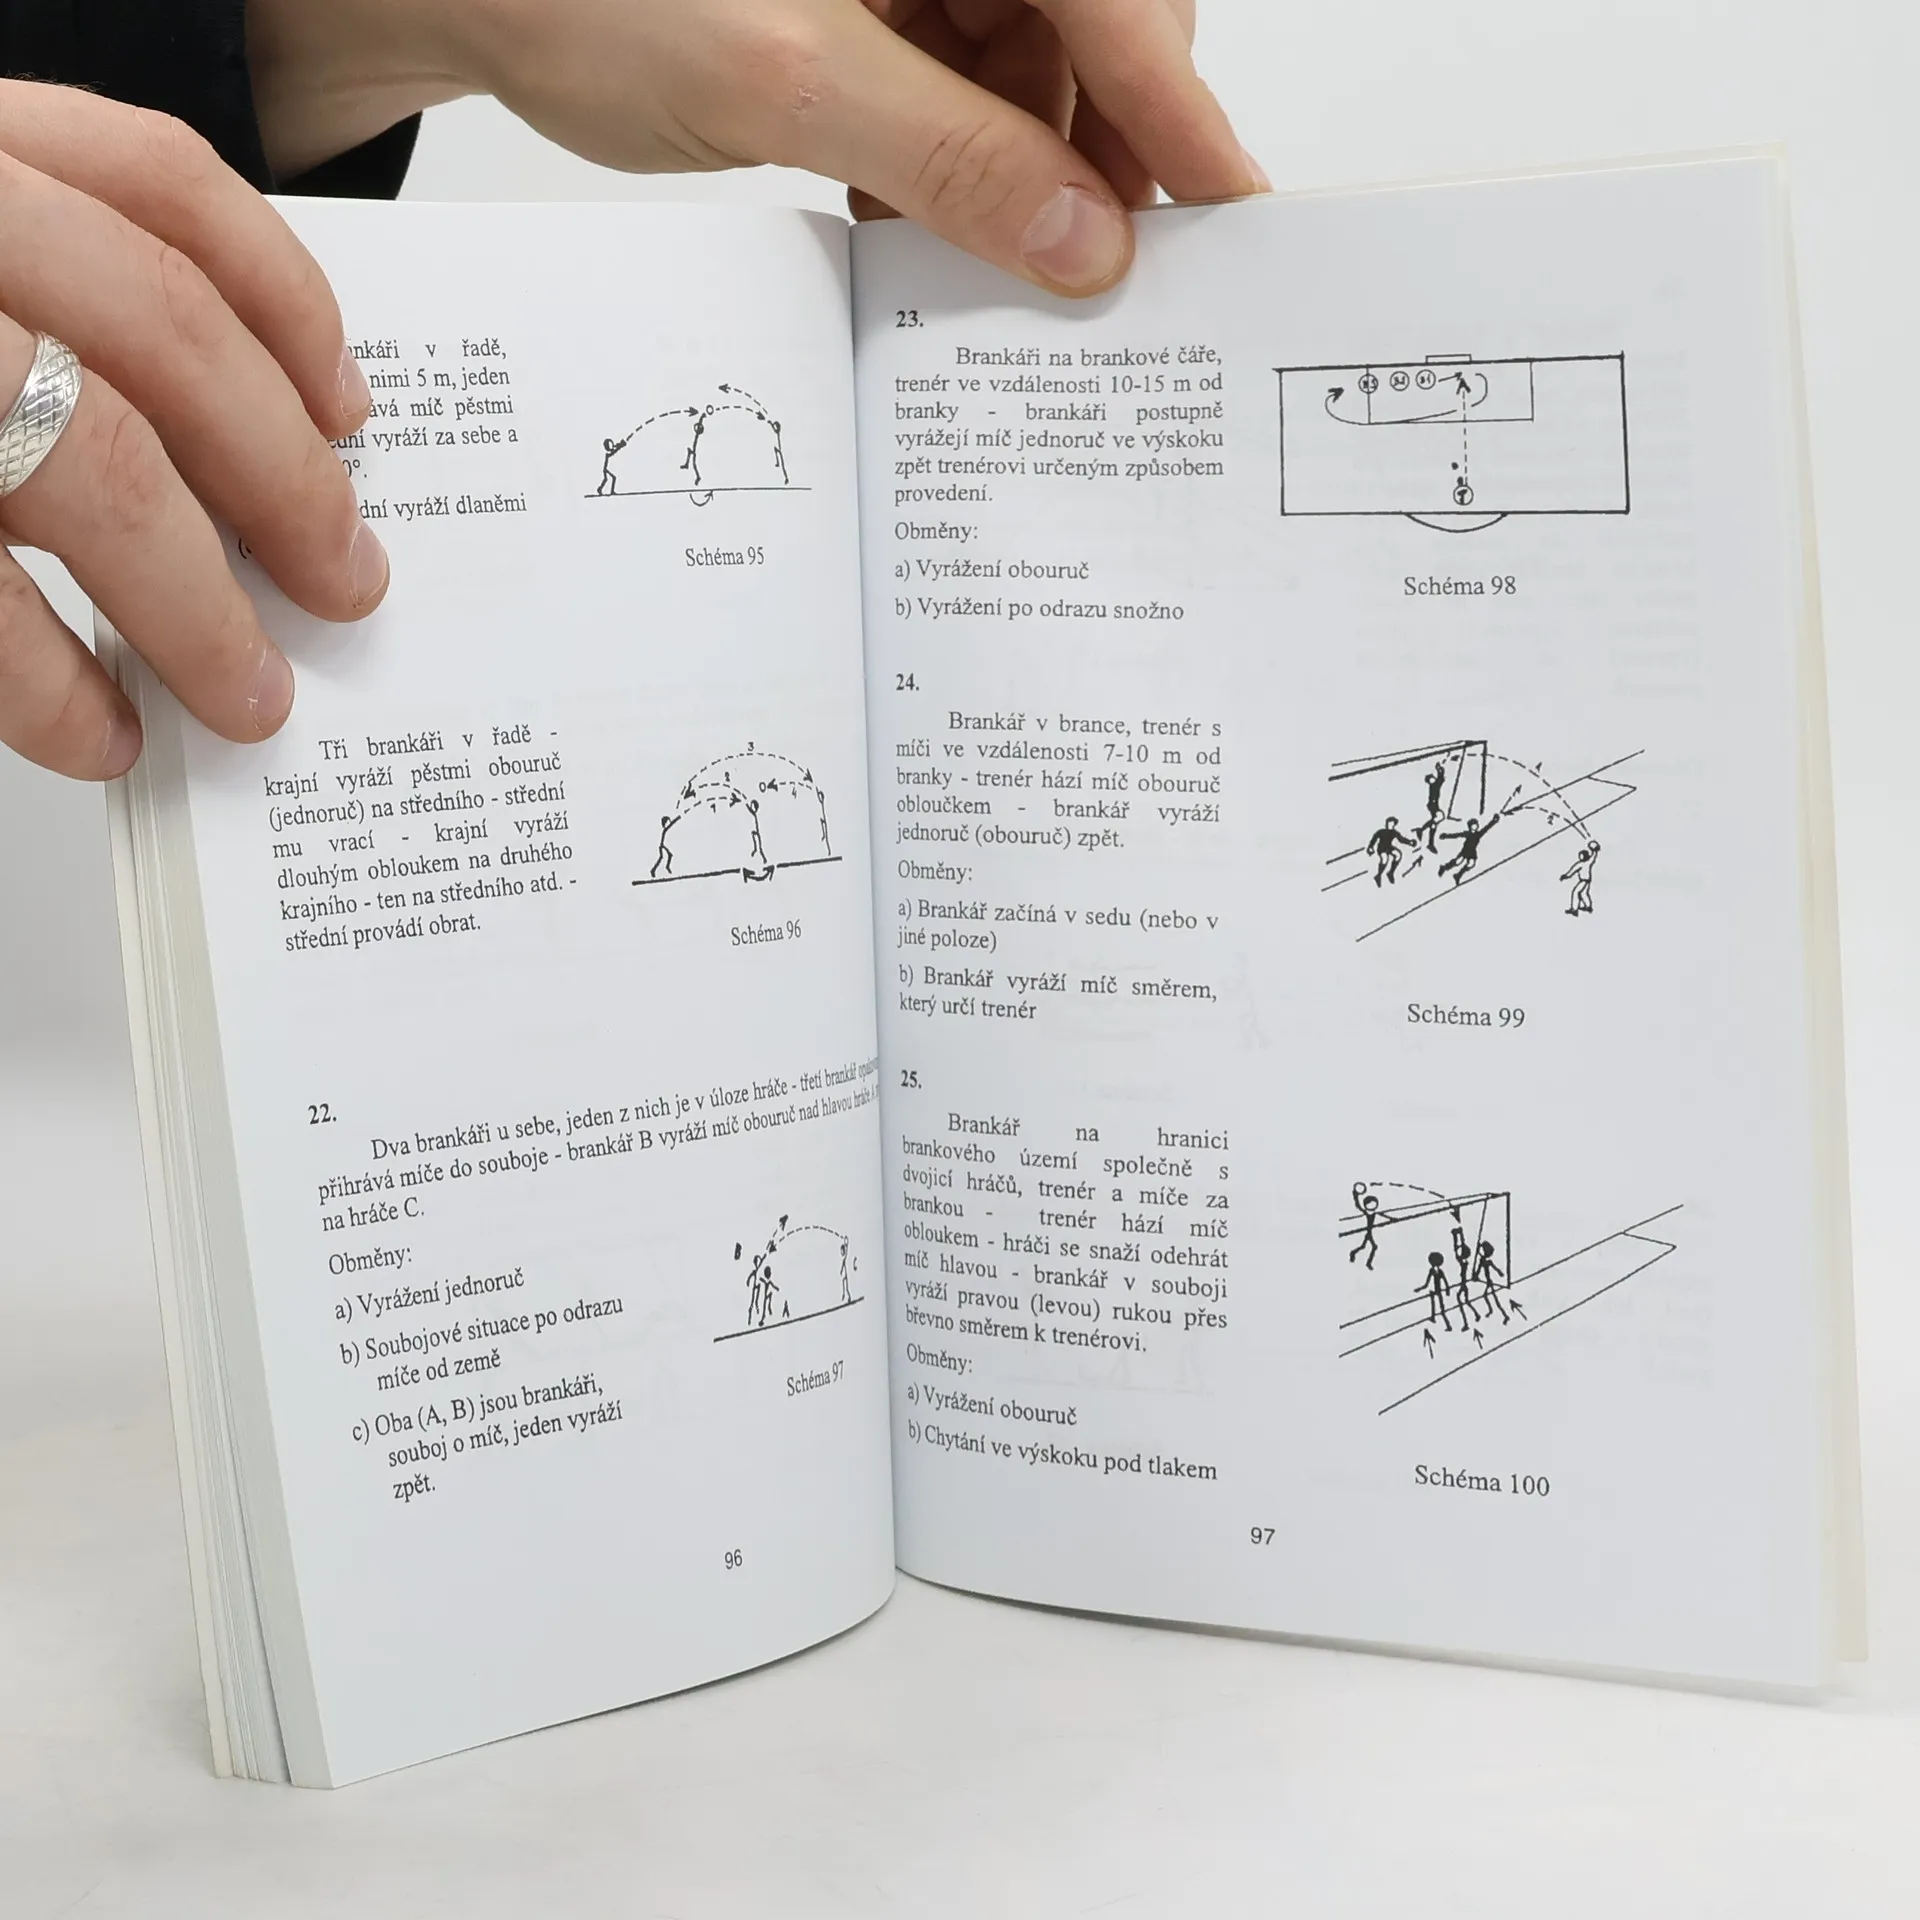 v řadě,
nimi 5 m, jeden
míč pěstmi
vyráží za sebe a
vyráží dlaněmi
Schéma 95
Tři brankáři v řadě -
krajní vyráží pěstmi obouruč
(jednoruč) na středního - střední
mu vrací - krajní vyráží
dlouhým obloukem na druhého
krajního - ten na středního atd. -
střední provádí obrat.
1
2
3
4
Schéma 96
22.
Dva brankáři u sebe, jeden z nich je v úloze hráče - třetí brankář
přihrává míče do souboje - brankář B vyráží míč obouruč nad hlavou hráče A
na hráče C.
Obměny:
a) Vyrážení jednoruč
b) Soubojové situace po odrazu
míče od země
c) Oba (A, B) jsou brankáři,
souboj o míč, jeden vyráží
zpět.
B
C
A
Schéma 97
96
23.
Brankáři na brankové čáře,
trenér ve vzdálenosti 10-15 m od
branky - brankáři postupně
vyrážejí míč jednoruč ve výskoku
zpět trenérovi určeným způsobem
provedení.
Obměny:
a) Vyrážení obouruč
b) Vyrážení po odrazu snožno
T
Schéma 98
24.
Brankář v brance, trenér s
míči ve vzdálenosti 7-10 m od
branky - trenér hází míč obouruč
obloučkem - brankář vyráží
jednoruč (obouruč) zpět.
Obměny:
a) Brankář začíná v sedu (nebo v
jiné poloze)
b) Brankář vyráží míč směrem,
který určí trenér
1
2
Schéma 99
25.
Brankář na hranici
brankového území společně s
dvojicí hráčů, trenér a míče za
brankou - trenér hází míč
obloukem - hráči se snaží odehrát
míč hlavou - brankář v souboji
vyráží pravou (levou) rukou přes
břevno směrem k trenérovi.
Obměny:
a) Vyrážení obouruč
b) Chytání ve výskoku pod tlakem
Schéma 100
97